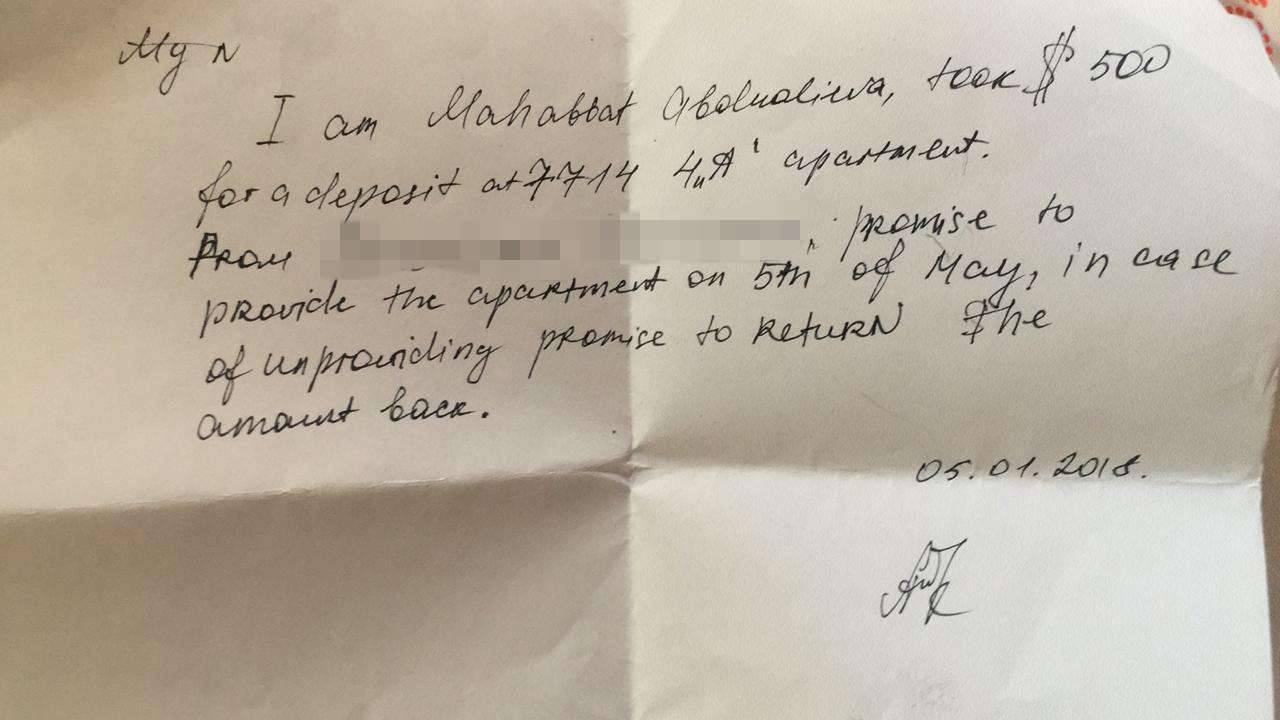 My N
I am Mahabbat Abdualieva, took $ 500
for a deposit at 7714 4„A‟ apartment.
From , promise to
provide the apartment on 5th of May, in case
of unproviding promise to return the
amount back.
05.01.2018.